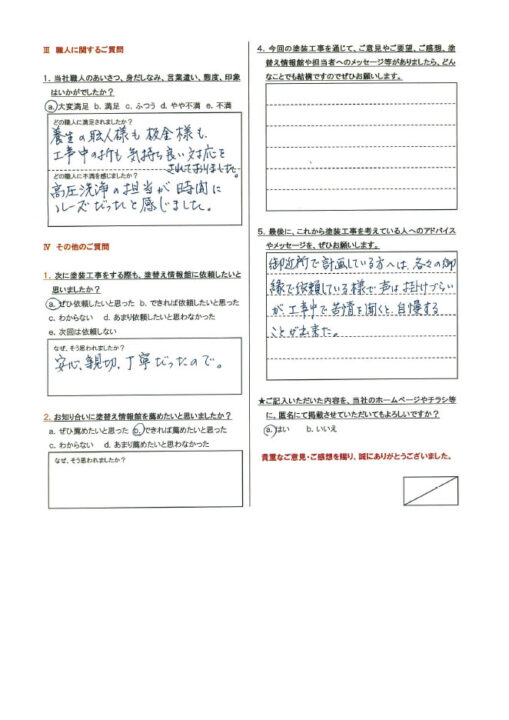 Ⅲ 職人に関するご質問
1. 当社職人のあいさつ、身だしなみ、言葉遣い、態度、印象
はいかがでしたか?
a.大変満足 b. 満足 c. ふつう d. やや不満 e. 不満
どの職人に満足されましたか?
養生の職人様も板金様も、
工事中の折も気持ち良い対応を
されておりました。
どの職人に不満を感じましたか?
高圧洗浄の担当が時間に
ルーズだったと感じました。
Ⅳ その他のご質問
1. 次に塗装工事をする際も、塗替え情報館に依頼したいと
思いましたか?
a.ぜひ依頼したいと思った b. できれば依頼したいと思った
c. わからない d. あまり依頼したいと思わなかった
e. 次回は依頼しない
なぜ、そう思われましたか?
安心、親切、丁寧だったので。
2. お知り合いに塗替え情報館を薦めたいと思いましたか?
a. ぜひ薦めたいと思った b.できれば薦めたいと思った
c. わからない d. あまり薦めたいと思わなかった
なぜ、そう思われましたか?
4. 今回の塗装工事を通じて、ご意見やご要望、ご感想、塗
替え情報館や担当者へのメッセージ等がありましたら、どん
なことでも結構ですのでぜひお願いします。
5. 最後に、これから塗装工事を考えている人へのアドバイス
やメッセージを、ぜひお願いします。
御近所で計画している方へは、各々の御
縁で依頼している様で声は掛けづらい
が工事中で苦情を聞くと、自慢する
ことが出来た。
★ご記入いただいた内容を、当社のホームページやチラシ等
に、匿名にて掲載させていただいてもよろしいですか?
a.はい b. いいえ
貴重なご意見・ご感想を賜り、誠にありがとうございました。